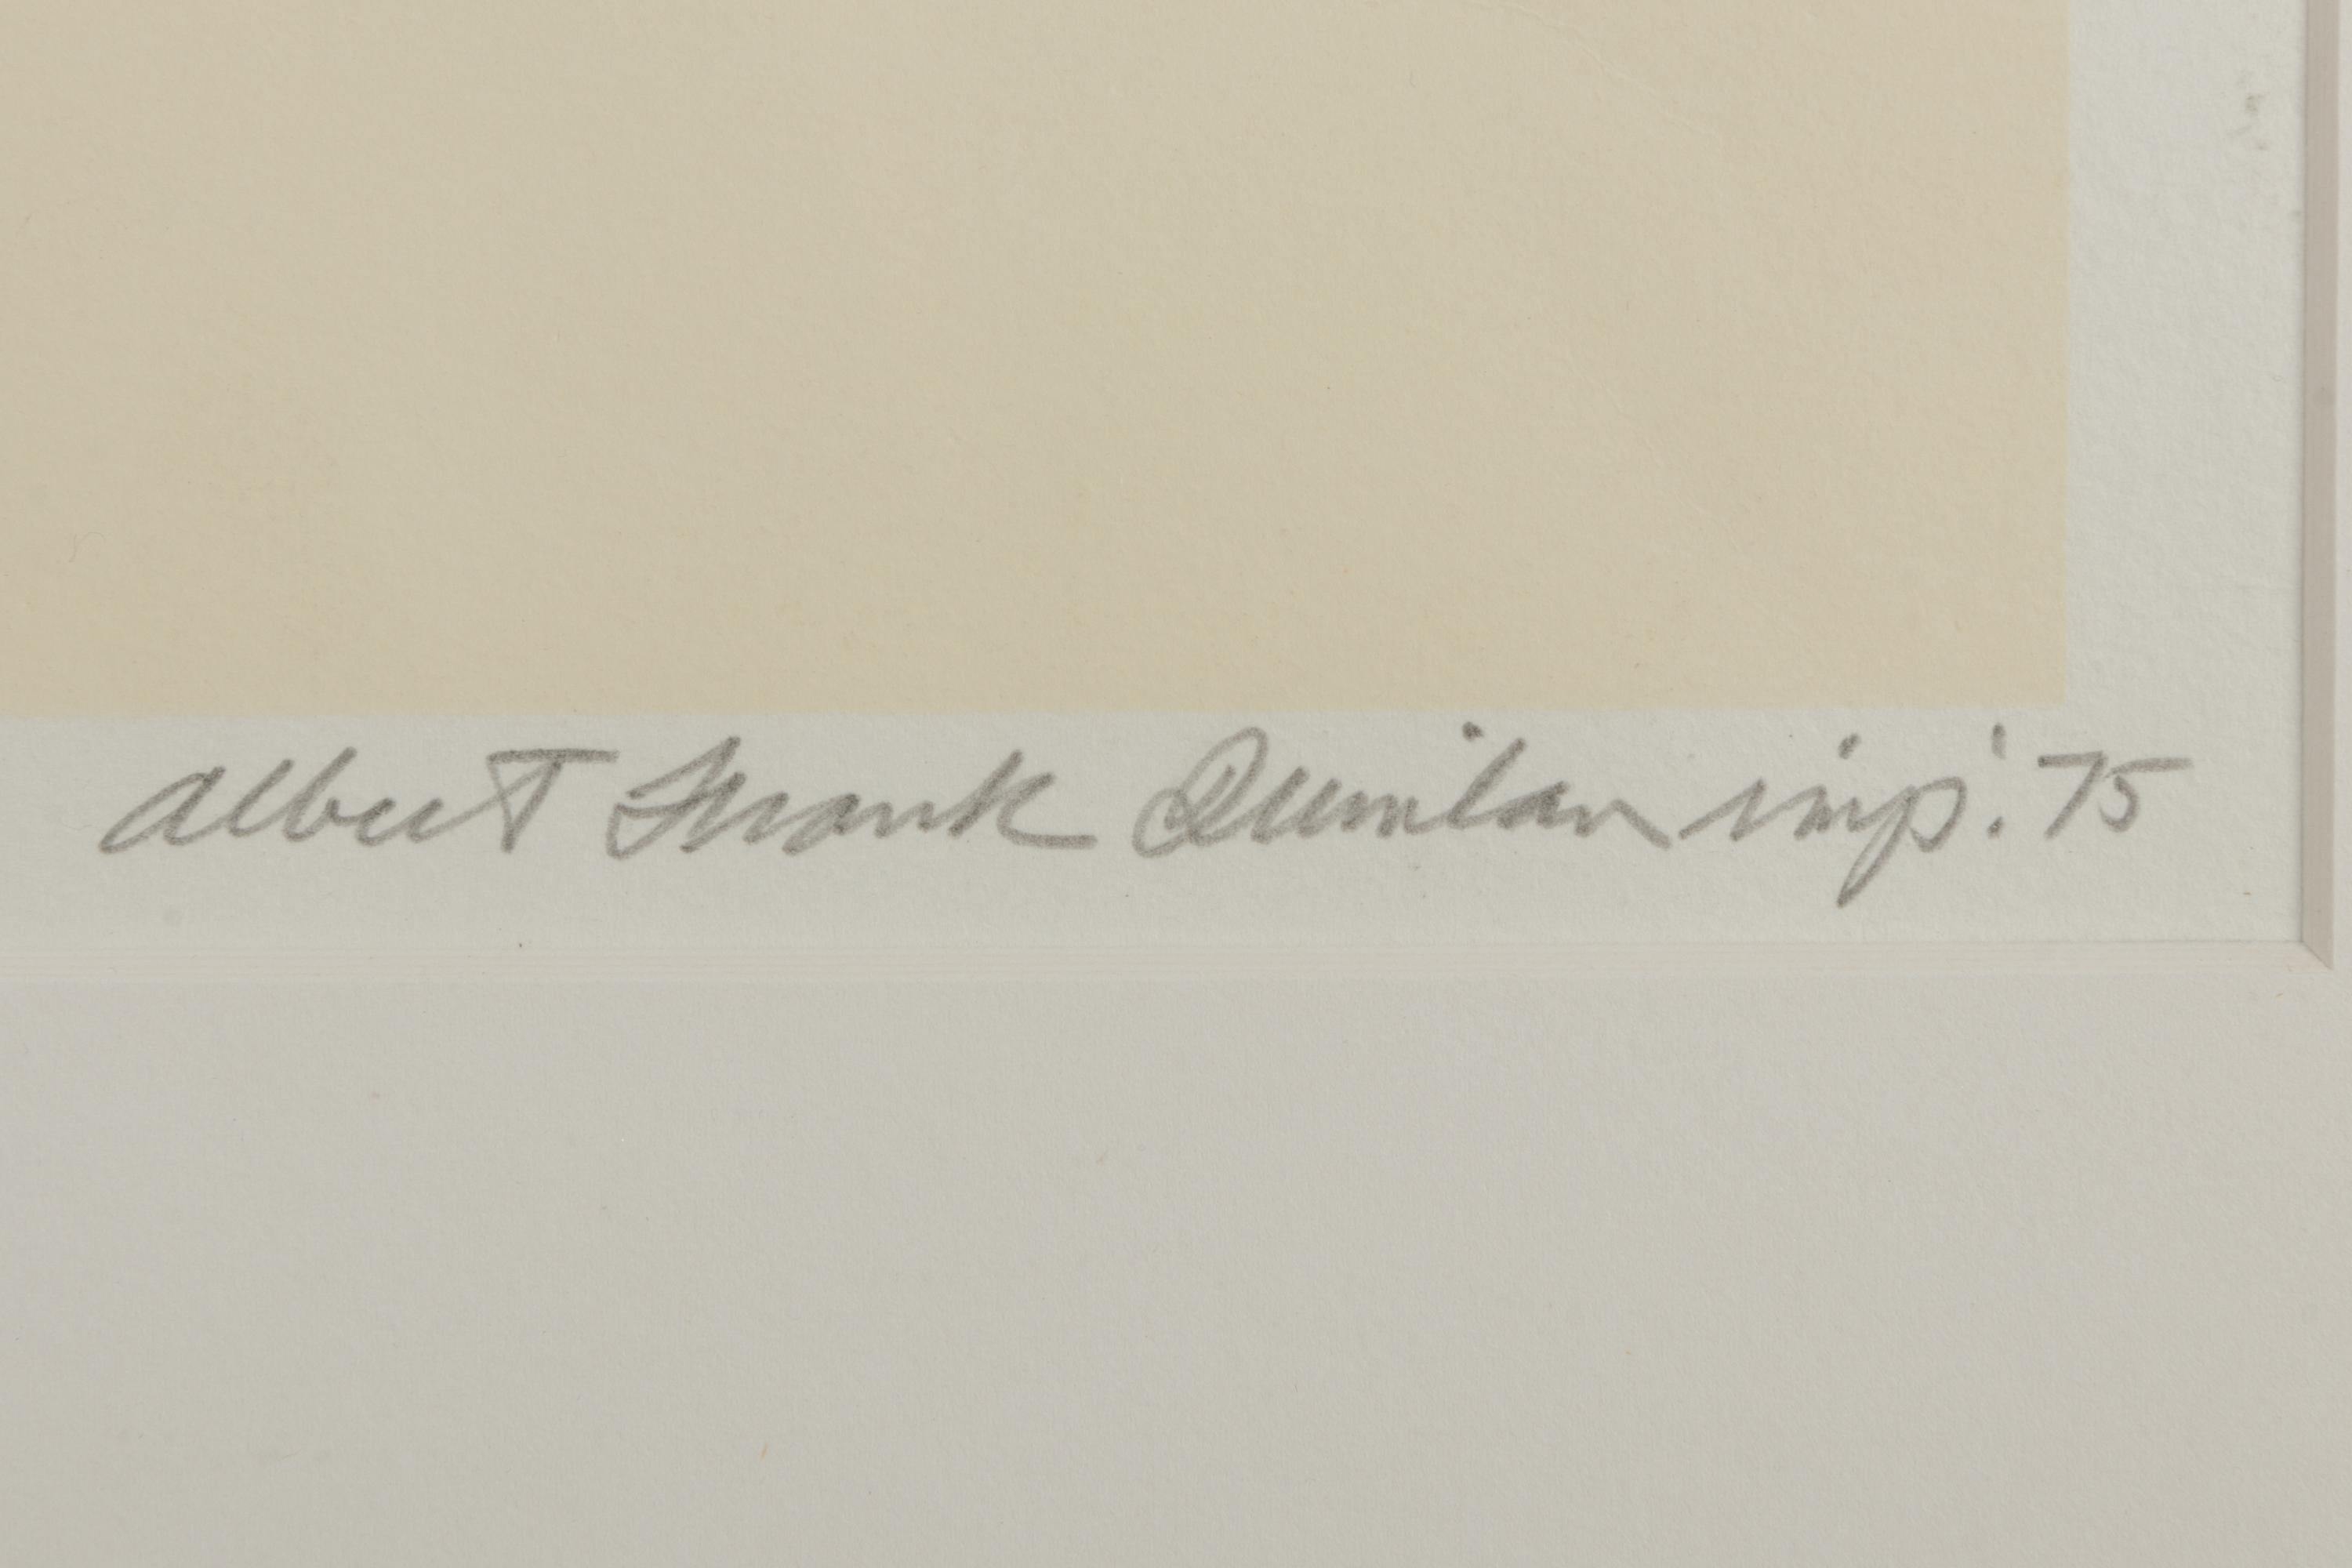 Albert Frank Quinlan imp. '75